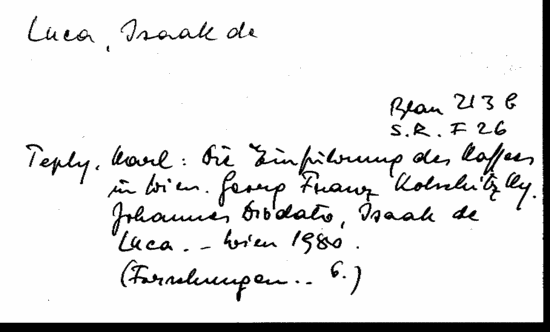 Luca, Isaak de
213 C
S.R. F 26
Teply, Karl: Die Einführung des Kaffees
in Wien. Georg Franz Kolschitzky.
Johannes Diodato, Isaak de
Luca. - Wien 1980.
(Forschungen.. 6.)